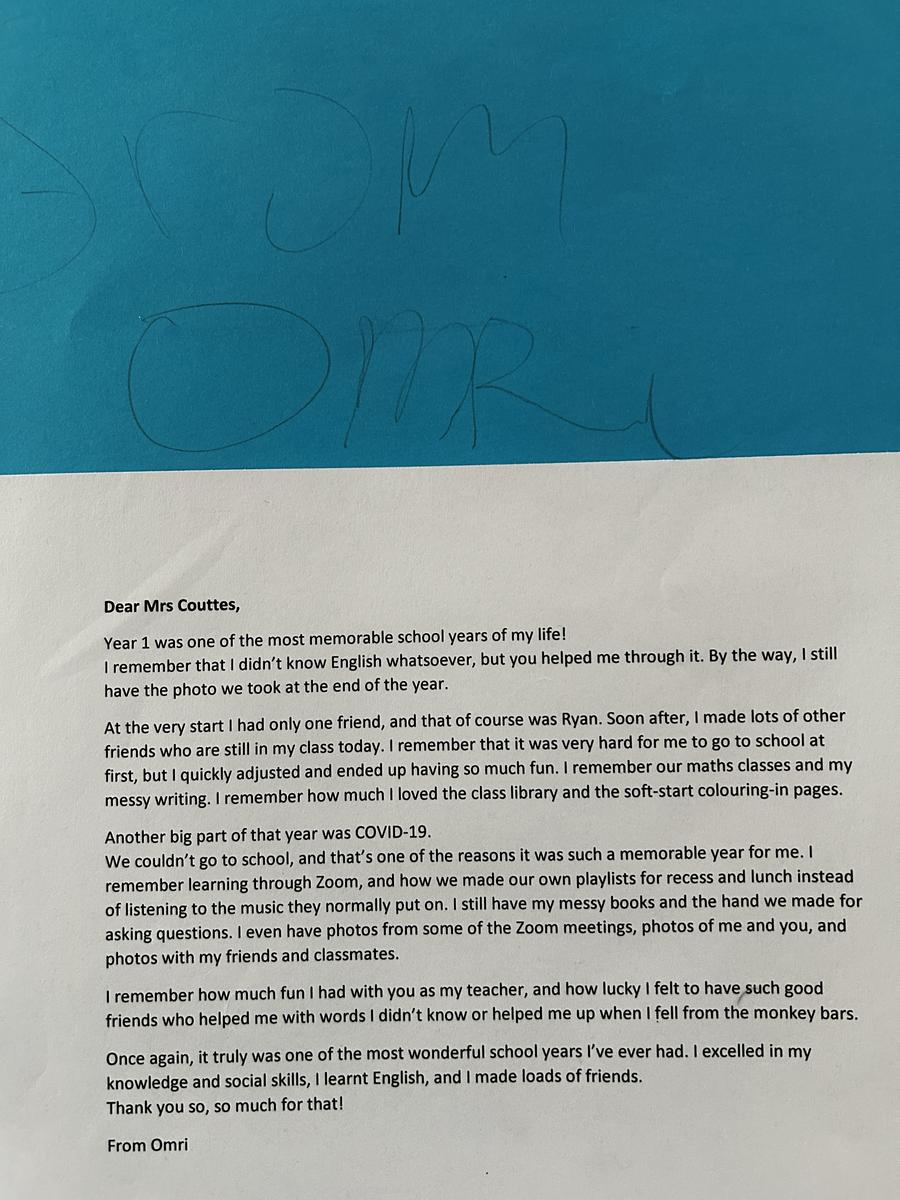 From
OMRi
Dear Mrs Couttes,
Year 1 was one of the most memorable school years of my life!
I remember that I didn't know English whatsoever, but you helped me through it. By the way, I still
have the photo we took at the end of the year.
At the very start I had only one friend, and that of course was Ryan. Soon after, I made lots of other
friends who are still in my class today. I remember that it was very hard for me to go to school at
first, but I quickly adjusted and ended up having so much fun. I remember our maths classes and my
messy writing. I remember how much I loved the class library and the soft-start colouring-in pages.
Another big part of that year was COVID-19.
We couldn't go to school, and that's one of the reasons it was such a memorable year for me. I
remember learning through Zoom, and how we made our own playlists for recess and lunch instead
of listening to the music they normally put on. I still have my messy books and the hand we made for
asking questions. I even have photos from some of the Zoom meetings, photos of me and you, and
photos with my friends and classmates.
I remember how much fun I had with you as my teacher, and how lucky I felt to have such good
friends who helped me with words I didn't know or helped me up when I fell from the monkey bars.
Once again, it truly was one of the most wonderful school years I've ever had. I excelled in my
knowledge and social skills, I learnt English, and I made loads of friends.
Thank you so, so much for that!
From Omri